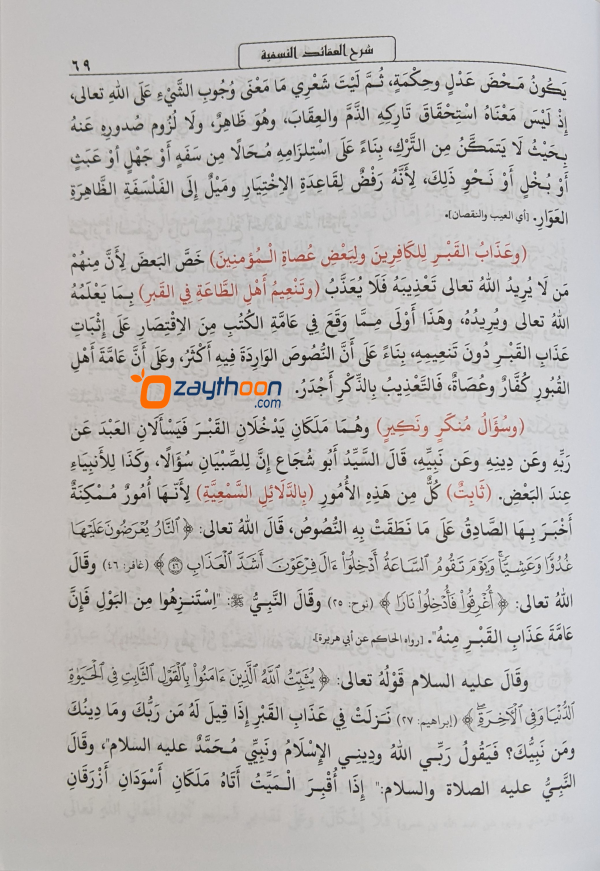 شرح العقائد النسفية
٦٩
يَكُونُ مَحْضَ عَدْلٍ وحِكْمَةٍ، ثُمَّ لَيْتَ شَعْرِي مَا مَعْنَى وُجُوبِ الشَّيْءِ عَلَى اللهِ تعالى،
إِذْ لَيْسَ مَعْنَاهُ اسْتِحْقَاقَ تَارِكِهِ الذَّمَّ والعِقَابَ، وهُوَ ظَاهِرٌ، ولَا لُزُوم صُدورِهِ عَنهُ
بِحَيْثُ لَا يَتمَكَّنُ مِن التَّرْكِ، بِنَاءً عَلَى اسْتِلزامِهِ مُحَالًا مِن سَفَهٍ أوْ جَهْلٍ أوْ عَبَثٍ
أَوْ بُخْلٍ أَوْ نَحوِ ذلِكَ، لِأَنَّهُ رَفْضٌ لِقَاعِدَةِ الاِخْتِيَارِ ومَيْلٌ إلى الفَلْسَفَةِ الظَّاهِرَةِ
العَوَارِ. [أي العيب والنقصان].
(وعَذَابُ القَبْرِ لِلكَافِرِينَ ولِبَعْضِ عُصاةِ الْمُؤمِنِينَ) خَصَّ البَعضَ لِأَنَّ مِنهُمْ
مَن لَا يُرِيدُ اللهُ تعالى تَعْذِيبَهُ فَلَا يُعَذَّبُ (وتَنْعِيمُ أَهْلِ الطَّاعَةِ فِي القَبرِ) بِمَا يَعْلَمُهُ
اللهُ تعالى ويُرِيدُهُ، وهَذَا أَوْلَى مِمَّا وَقَعَ فِي عَامَّةِ الكُتُبِ مِنَ الاِقْتِصَارِ عَلَى إِثْبَاتِ
عَذَابِ القَبْرِ دُونَ تَنعِيمِهِ، بِنَاءً عَلَى أَنَّ النُّصُوصَ الوَارِدَةَ فِيهِ أَكْثَرُ، وعَلَى أَنَّ عَامَّةَ أَهْلِ
القُبُورِ كُفَّارٌ وعُصَاةٌ، فَالتَّعْذِيبُ بِالذِّكْرِ أَجْدَرُ.
zaythoon
.com
(وسُؤَالُ مُنكَرٍ ونَكِيرٍ) وهُمَا مَلَكَانِ يَدْخُلَانِ القَبْرَ فَيَسْأَلَانِ العَبْدَ عَن
رَبِّهِ وعَن دِينِهِ وعَن نَبِيِّهِ، قَالَ السَّيِّدُ أَبُو شُجَاع إِنَّ لِلصِّبْيَانِ سُؤَالًا، وكَذَا لِلأَنبِيَاءِ
عِندَ البَعْضِ. (ثَابِتٌ) كُلٌّ مِن هَذِهِ الأُمُورِ (بِالدَّلَائِلِ السَّمْعِيَّةِ) لِأَنَّهَا أُمُورٌ مُمْكِنَةٌ
أَخْبَرَ بِهَا الصَّادِقُ عَلَى مَا نَطَقَتْ بِهِ النُّصُوصُ، قَالَ اللهُ تعالى: ﴿ ٱلنَّارُ يُعْرَضُونَ عَلَيْهَا
غُدُوًّا وَعَشِيًّا ۖ وَيَوْمَ تَقُومُ ٱلسَّاعَةُ أَدْخِلُوٓا۟ ءَالَ فِرْعَوْنَ أَشَدَّ ٱلْعَذَابِ ٤٦ ﴾ (غافر: ٤٦) وقَالَ
اللهُ تعالى: ﴿ أُغْرِقُوا۟ فَأُدْخِلُوا۟ نَارًا ﴾ (نوح: ٢٥) وقَالَ النَّبِيُّ ﷺ: "اسْتَنزِهُوا مِنَ البَوْلِ فَإِنَّ
عَامَّةَ عَذَابِ القَبْرِ مِنهُ". [رواه الحاكم عن أبي هريرة].
وقَالَ عليه السلام قَوْلُهُ تعالى: ﴿ يُثَبِّتُ ٱللَّهُ ٱلَّذِينَ ءَامَنُوا۟ بِٱلْقَوْلِ ٱلثَّابِتِ فِى ٱلْحَيَوٰةِ
ٱلدُّنْيَا وَفِى ٱلْـَٔاخِرَةِ ۖ ﴾ (إبراهيم: ٢٧) نَزَلَتْ فِي عَذَابِ القَبْرِ إِذَا قِيلَ لَهُ مَن رَبُّكَ ومَا دِينُكَ
ومَن نَبِيُّكَ؟ فَيَقُولُ رَبِّي اللهُ ودِينِي الإِسْلَامُ ونَبِيِّي مُحَمَّدٌ عليه السلام"، وقَالَ
النَّبِيُّ عليه الصلاة والسلام:" إِذَا أُقْبِرَ الْمَيِّتُ أَتَاهُ مَلَكَانِ أَسْوَدَانِ أَزْرَقَانِ